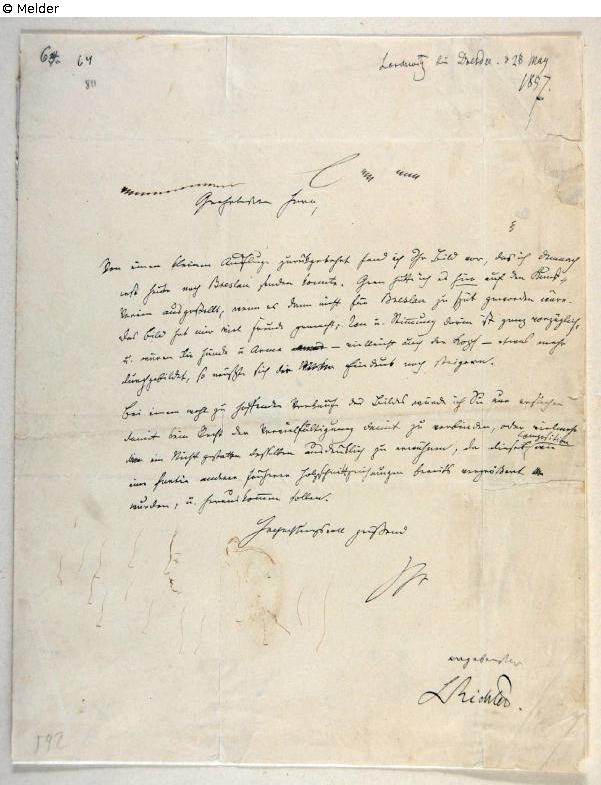 © Melder
64
64
Loschwitz bei Dresden d 28 May
1857.
Geehrtester Herr,
Von einem kleinen Ausfluge zurückgekehrt fand ich Ihr Bild vor, das ich demnach
erst heute nach Breslau senden konnte. Gern hätt ich es hier auf den Kunst-
Verein ausgestellt, wenn es dann nicht für Breslau zu spät geworden wäre.
Das Bild hat mir viel Freude gemacht; Ton u. Stimmung darin ist ganz vorzüglich,
u. wären die Hände u Arme – vielleicht auch der Kopf – etwas mehr
durchgebildet, so müßte sich der Eindruck noch steigern.
Bei einem wohl zu hoffenden Verkaufe des Bildes würde ich Sie nur ersuchen
damit kein Recht der Vervielfältigung damit zu verbinden, oder vielmehr
ein Nicht gestatten desselben ausdrücklich zu erwähnen, da diese Composition
eine Partie anderer früherer Holzschnittzeichnungen bereits vergrößert
wurden, u. herauskommen sollen.
Hochachtungsvoll grüßend
Ihr
ergebenster
LRichter.
192